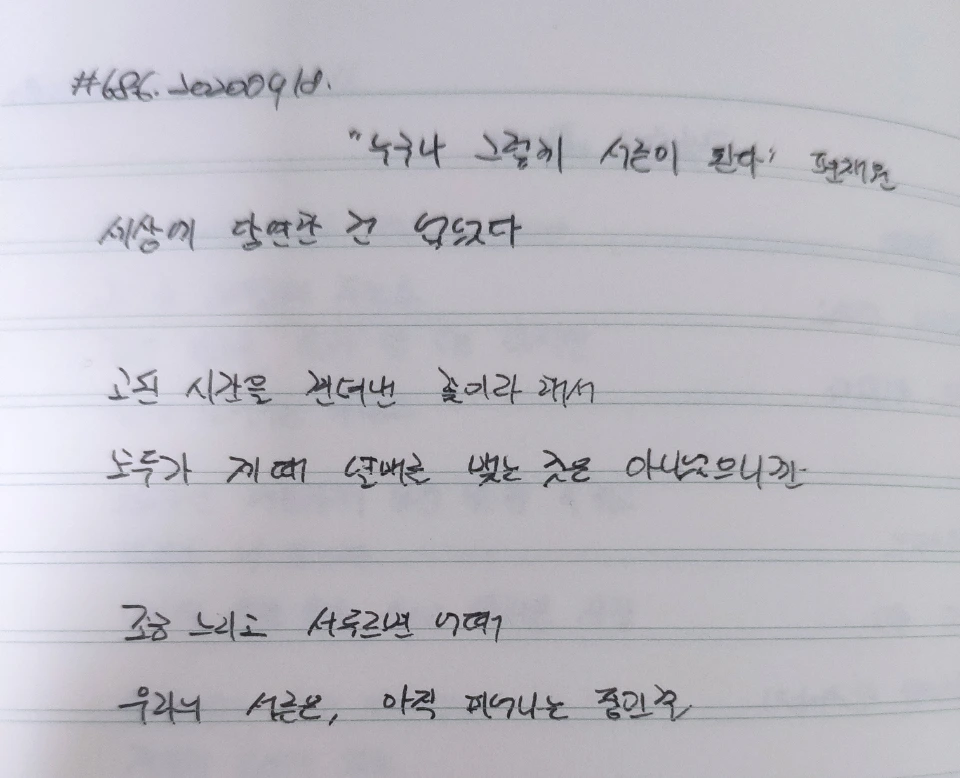 #686. 20200918.
"누구나 그렇게 서른이 된다" 편채원
세상에 당연한 건 없었다
고된 시간을 견뎌낸 꽃이라 해서
모두가 제때 열매를 맺는 것은 아니었으니까
조금 느리고 서투르면 어때
우리의 서른은, 아직 피어나는 중인걸